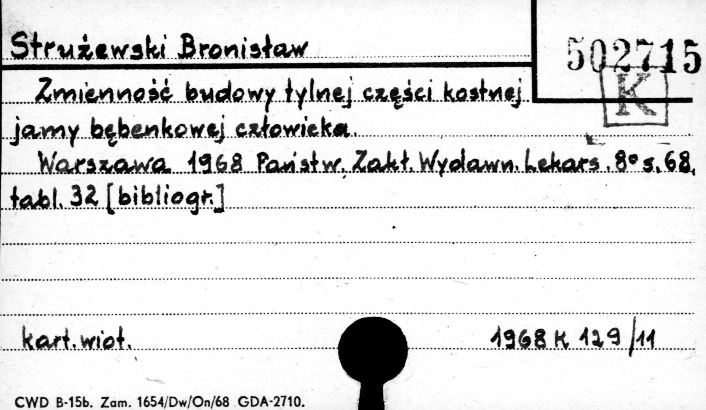 Strużewski Bronisław
502715
K
Zmienność budowy tylnej części kostnej
jamy bębenkowej człowieka.
Warszawa 1968 Państw. Zakł. Wydawn. Lekars. 8° s. 68,
tabl. 32 [bibliogr.]
kart. wiot.
1968 K 129/11
CWD B-15b. Zam. 1654/Dw/On/68 GDA-2710.